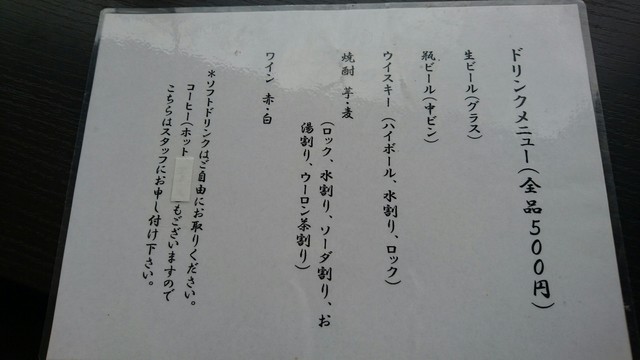 ドリンクメニュー(全品500円)
生ビール(グラス)
瓶ビール(中ビン)
ウイスキー(ハイボール、水割り、ロック)
焼酎 芋・麦
(ロック、水割り、ソーダ割り、お
湯割り、ウーロン茶割り)
ワイン 赤・白
*ソフトドリンクはご自由にお取りください。
コーヒー(ホット もございますので
こちらはスタッフにお申し付け下さい。